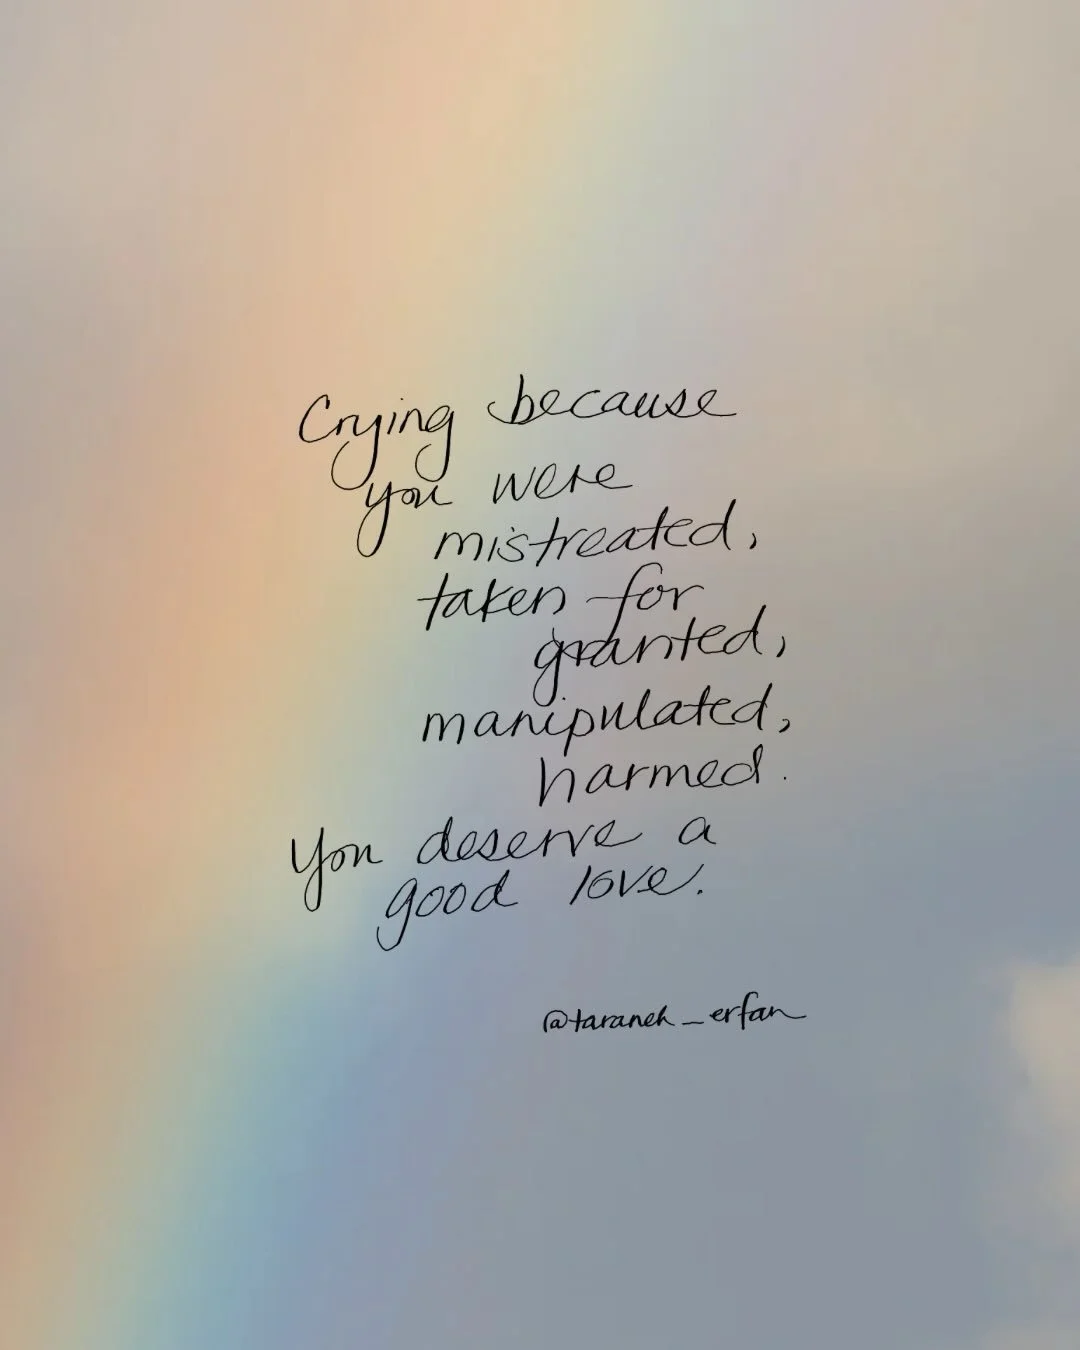 Crying because
you were
mistreated,
taken for
granted,
manipulated,
harmed.
You deserve a
good love.
@taraneh_erfan